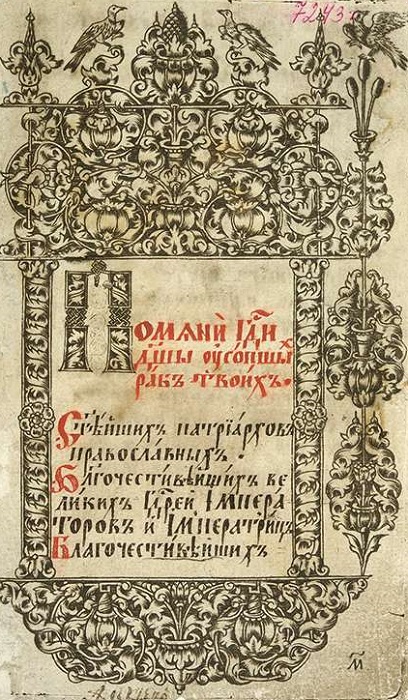 7243
Помѧни Гдⷭ҇и
дꙋшы оусопшыⷯ
рабъ твоихъ.
Ст҃ѣйшихъ патрїарховъ
православныхъ.
Бл҃гочестивѣйшихъ ве
ликихъ Гдⷭ҇рей Импера
торовъ и Императрицъ
Благочестивѣйшихъ